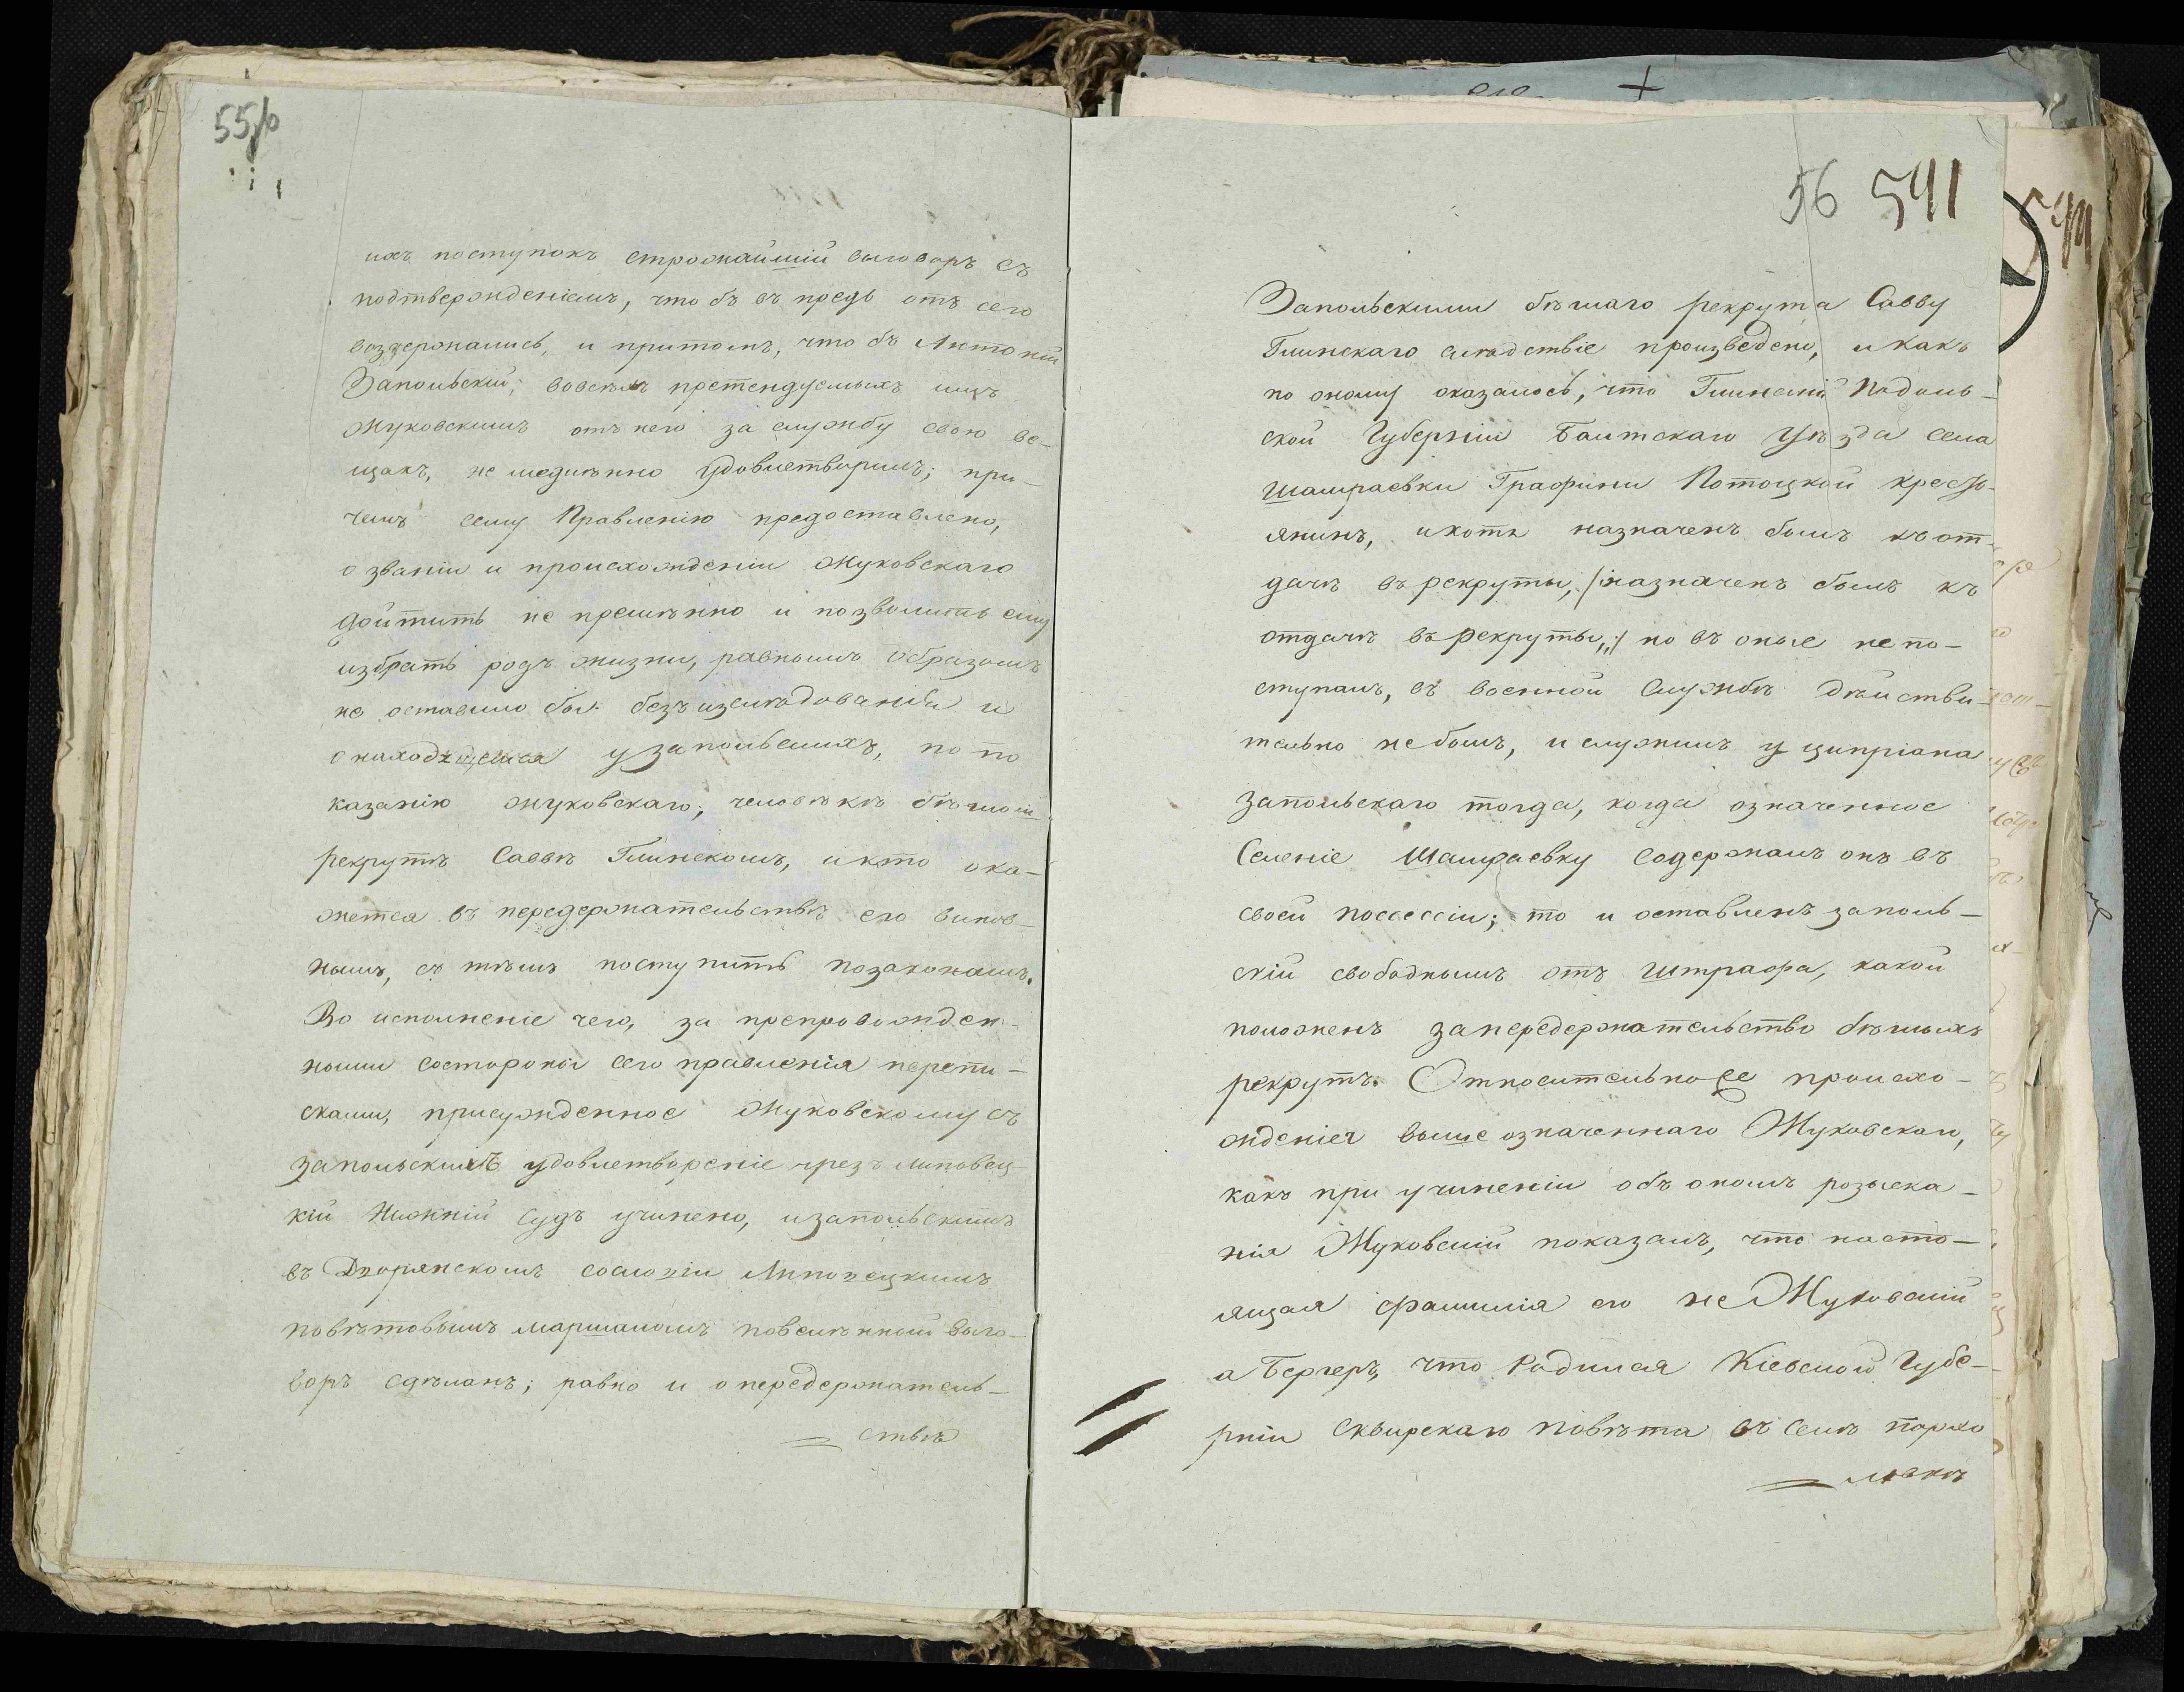 55/b
ихъ поступокъ строжайшій выговоръ съ
подтвержденіемъ, что бъ въ предь отъ сего
воздержались, и притомъ, что бъ Антоній
Запольскій; вовсемъ претендуемыхъ имъ
Жуковскимъ отъ него за службу свою ве-
щахъ, не медленно удовлетворилъ; при-
чемъ сему Правленію предоставлено,
о званіи и происхожденіи Жуковскаго
дойтить не премѣнно и позволить ему
избрать родъ жизни, равнымъ образомъ
не оставило бы безъ изслѣдованія и
о находящемся у запольскихъ, по по
казанію Жуковскаго, человѣкѣ бѣглом
рекрутѣ Саввѣ Глинскомъ, и кто ока-
жется въ передержательствѣ его винов-
нымъ, съ тѣмъ поступить по законамъ.
Во исполненіе чего, за препровожден-
ными состороны сего правленія перепи-
сками, присужденное Жуковскому съ
запольскихъ удовлетвореніе чрезъ липовец-
кій Нижній судъ учинено, и запольскимъ
въ Дворянскомъ сословіи Липовецкимъ
повѣтовымъ маршаломъ повелѣнной выго-
воръ сдѣланъ; равно и о передержатель-
= ствѣ
56 541
Запольскими бѣглаго рекрута Савву
Глинскаго слѣдствіе произведено, и какъ
по оному оказалось, что Глинскій Подоль-
ской Губерніи Балтскаго Уѣзда села
Шамраевки Графини Потоцкой кресть-
янинъ, и хотя назначенъ былъ къ от-
дачѣ въ рекруты, /назначенъ былъ къ
отдачѣ въ рекруты,/ но въ оные не по-
ступалъ, въ военной службѣ дѣйстви-
тельно не былъ, и служилъ у ципріана
запольскаго тогда, когда означенное
Селеніе Шамраевку содержалъ онъ въ
своей поссессіи; то и оставленъ заполь-
скій свободнымъ отъ штрафа, какой
положенъ за передержательство бѣглыхъ
рекрутъ. Относительно же происхо-
жденія выше означеннаго Жуковскаго,
какъ при учиненіи объ ономъ розыска-
нія Жуковскій показалъ, что насто-
ящая фамилія его не Жуковскій
а Бергеръ, что родился Кіевской Губе-
рніи Сквирскаго повѣта въ селѣ пархо
= мовкѣ